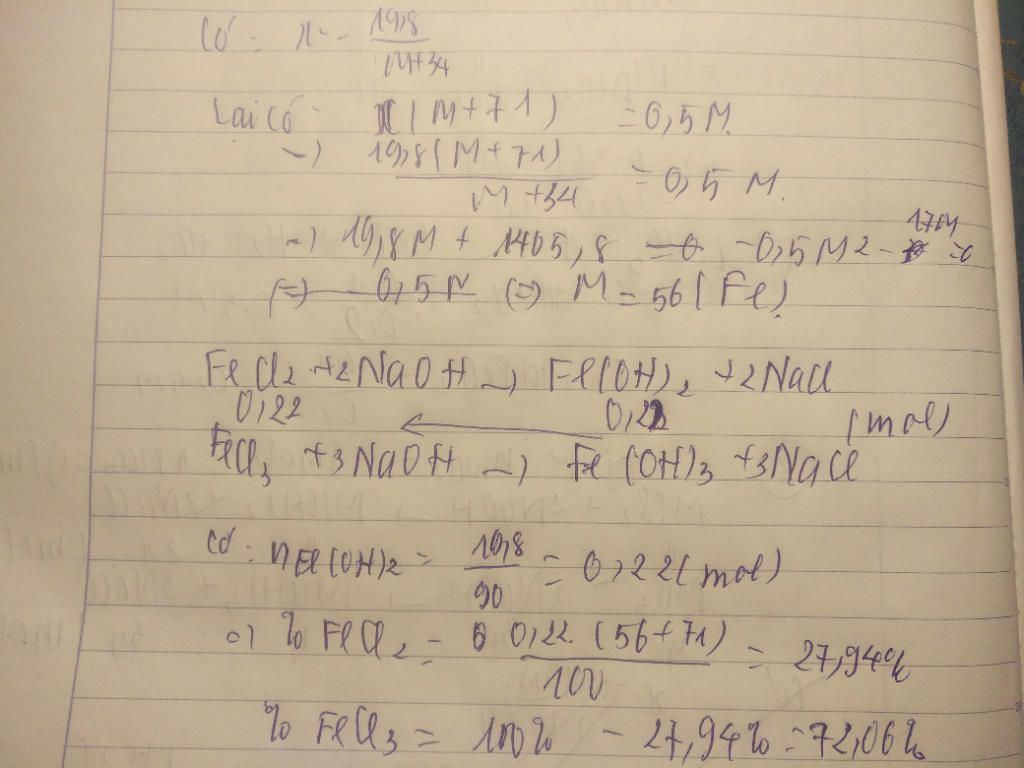 Có: x = 19,8 / M+34
Lại có: x(M+71) = 0,5M.
→ 19,8(M+71) / M+34 = 0,5 M.
→ 19,8M + 1405,8 - 0,5M2 - 17M = 0
(=) M = 56 (Fe).
FeCl2 + 2NaOH → Fe(OH)2 + 2NaCl
0,22 ← 0,22 (mol)
FeCl3 + 3NaOH → Fe(OH)3 + 3NaCl
Có: nFe(OH)2 = 19,8 / 90 = 0,22 (mol)
→ % FeCl2 = 0,22.(56+71) / 100 = 27,94%
% FeCl3 = 100% - 27,94% = 72,06%